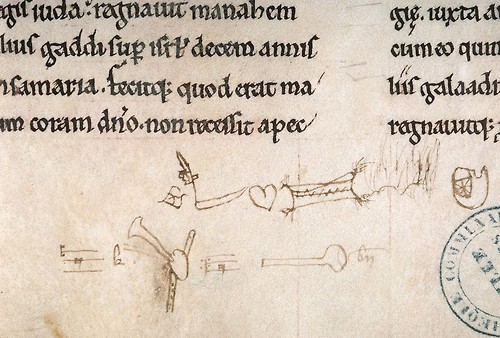 egis iuda: regnauit manahem
lius gaddi sup̄ isrl̄ decem annis
samaria. fecitq; quod erat ma
um coram dn̄o. non recessit a pec
gię. iuxta
cum eo quin
liis galaad
regnauitq;
COMMUNA